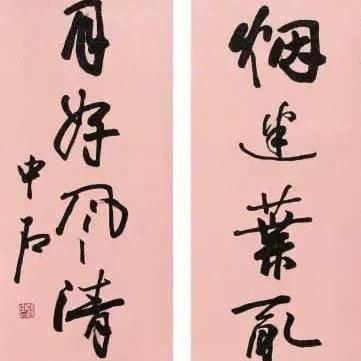 烟迷葉亂
月好风清
中石